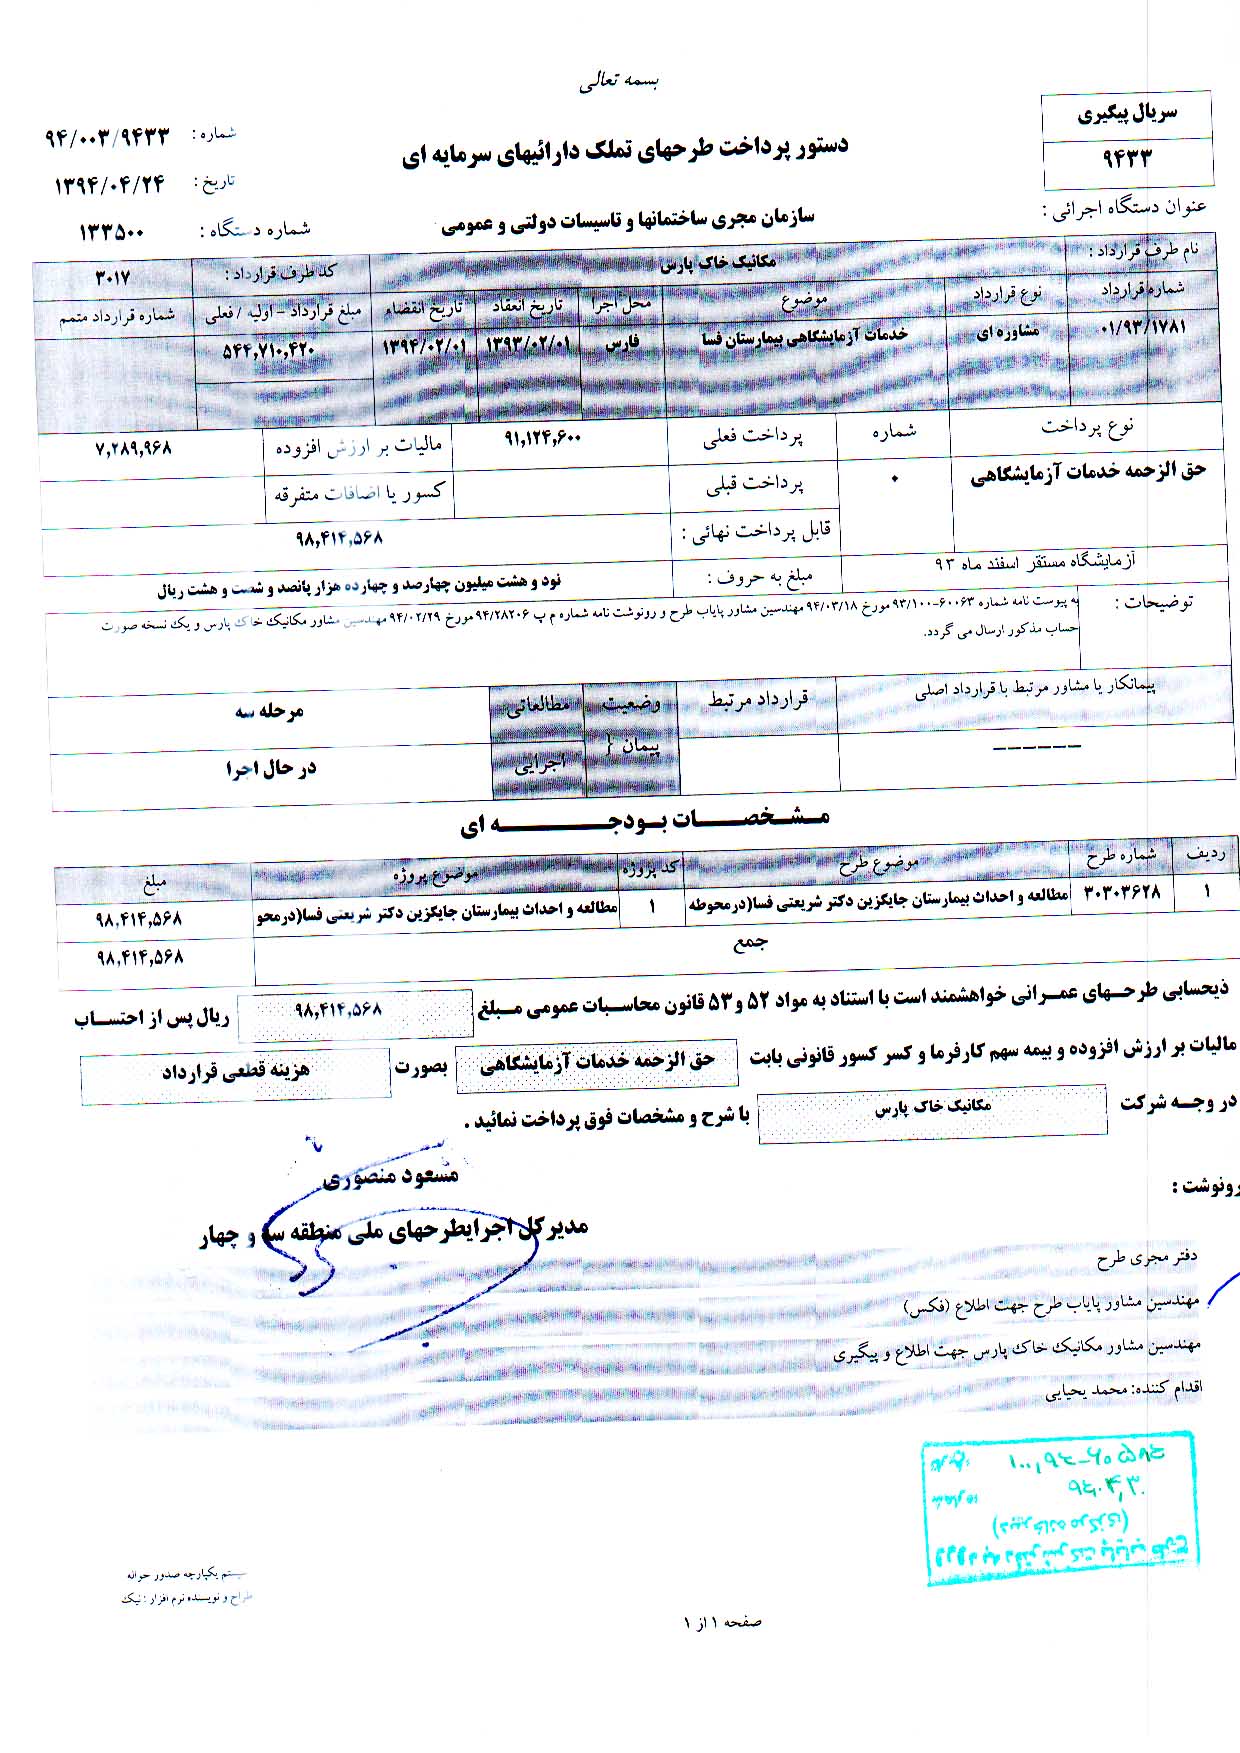 بسمه تعالی
سریال پیگیری
۹۴۳۳
دستور پرداخت طرحهای تملک دارائیهای سرمایه ای
شماره : ۹۴/۰۰۳/۹۴۳۳
تاریخ : ۱۳۹۴/۰۴/۲۴
عنوان دستگاه اجرائی : سازمان مجری ساختمانها و تاسیسات دولتی و عمومی
شماره دستگاه : ۱۳۳۵۰۰
نام طرف قرارداد : مکانیک خاک پارس کد طرف قرارداد : ۳۰۱۷
شماره قرارداد نوع قرارداد موضوع محل اجرا تاریخ انعقاد تاریخ انقضاء مبلغ قرارداد - اولیه / فعلی شماره قرارداد متمم
۰۱/۹۳/۱۷۸۱ مشاوره ای خدمات آزمایشگاهی بیمارستان فسا فارس ۱۳۹۳/۰۲/۰۱ ۱۳۹۴/۰۲/۰۱ ۵۴۴,۷۱۰,۴۲۰
نوع پرداخت شماره پرداخت فعلی ۹۱,۱۲۴,۶۰۰ مالیات بر ارزش افزوده ۷,۲۸۹,۹۶۸
حق الزحمه خدمات آزمایشگاهی ۰ پرداخت قبلی کسور یا اضافات متفرقه
قابل پرداخت نهائی : ۹۸,۴۱۴,۵۶۸
آزمایشگاه مستقر اسفند ماه ۹۳ مبلغ به حروف : نود و هشت میلیون چهارصد و چهارده هزار پانصد و شصت و هشت ریال
توضیحات : به پیوست نامه شماره ۶۰۰۶۳-۹۳/۱۰۰ مورخ ۹۴/۰۳/۱۸ مهندسین مشاور پایاب طرح و رونوشت نامه شماره م پ ۹۴/۲۸۲۰۶ مورخ ۹۴/۰۲/۲۹ مهندسین مشاور مکانیک خاک پارس و یک نسخه صورت
حساب مذکور ارسال می گردد.
پیمانکار یا مشاور مرتبط با قرارداد اصلی قرارداد مرتبط وضعیت مطالعاتی مرحله سه
------ پیمان { اجرایی در حال اجرا
مـشـخـصـــات بـودجـــــــه ای
ردیف شماره طرح موضوع طرح کد پروژه موضوع پروژه مبلغ
۱ ۳۰۳۰۳۶۲۸ مطالعه و احداث بیمارستان جایگزین دکتر شریعتی فسا(درمحوطه ۱ مطالعه و احداث بیمارستان جایگزین دکتر شریعتی فسا(درمحو ۹۸,۴۱۴,۵۶۸
جمع ۹۸,۴۱۴,۵۶۸
ذیحسابی طرحـهای عمـرانی خواهشمند است با استناد به مواد ۵۲ و ۵۳ قانون محاسبات عمومی مـبلغ ۹۸,۴۱۴,۵۶۸ ریال پس از احتسـاب
مالیات بر ارزش افزوده و بیمه سهم کارفرما و کسر کسور قانونی بابت حق الزحمه خدمات آزمایشگاهی بصورت هزینه قطعی قرارداد
در وجـه شرکت مکانیک خاک پارس با شرح و مشخصات فوق پرداخت نمائید .
مسعود منصوری
رونوشت :
مدیرکل اجرایطرحهای ملی منطقه سه و چهار
دفتر مجری طرح
مهندسین مشاور پایاب طرح جهت اطلاع (فکس)
مهندسین مشاور مکانیک خاک پارس جهت اطلاع و پیگیری
اقدام کننده: محمد یحیایی
ورود به دفتر شرکت پایاب طرح
(دبیرخانه مرکزی)
شماره
تاریخ:
سیستم یکپارچه صدور حواله
طراح و نویسنده نرم افزار : نیک
صفحه ۱ از ۱